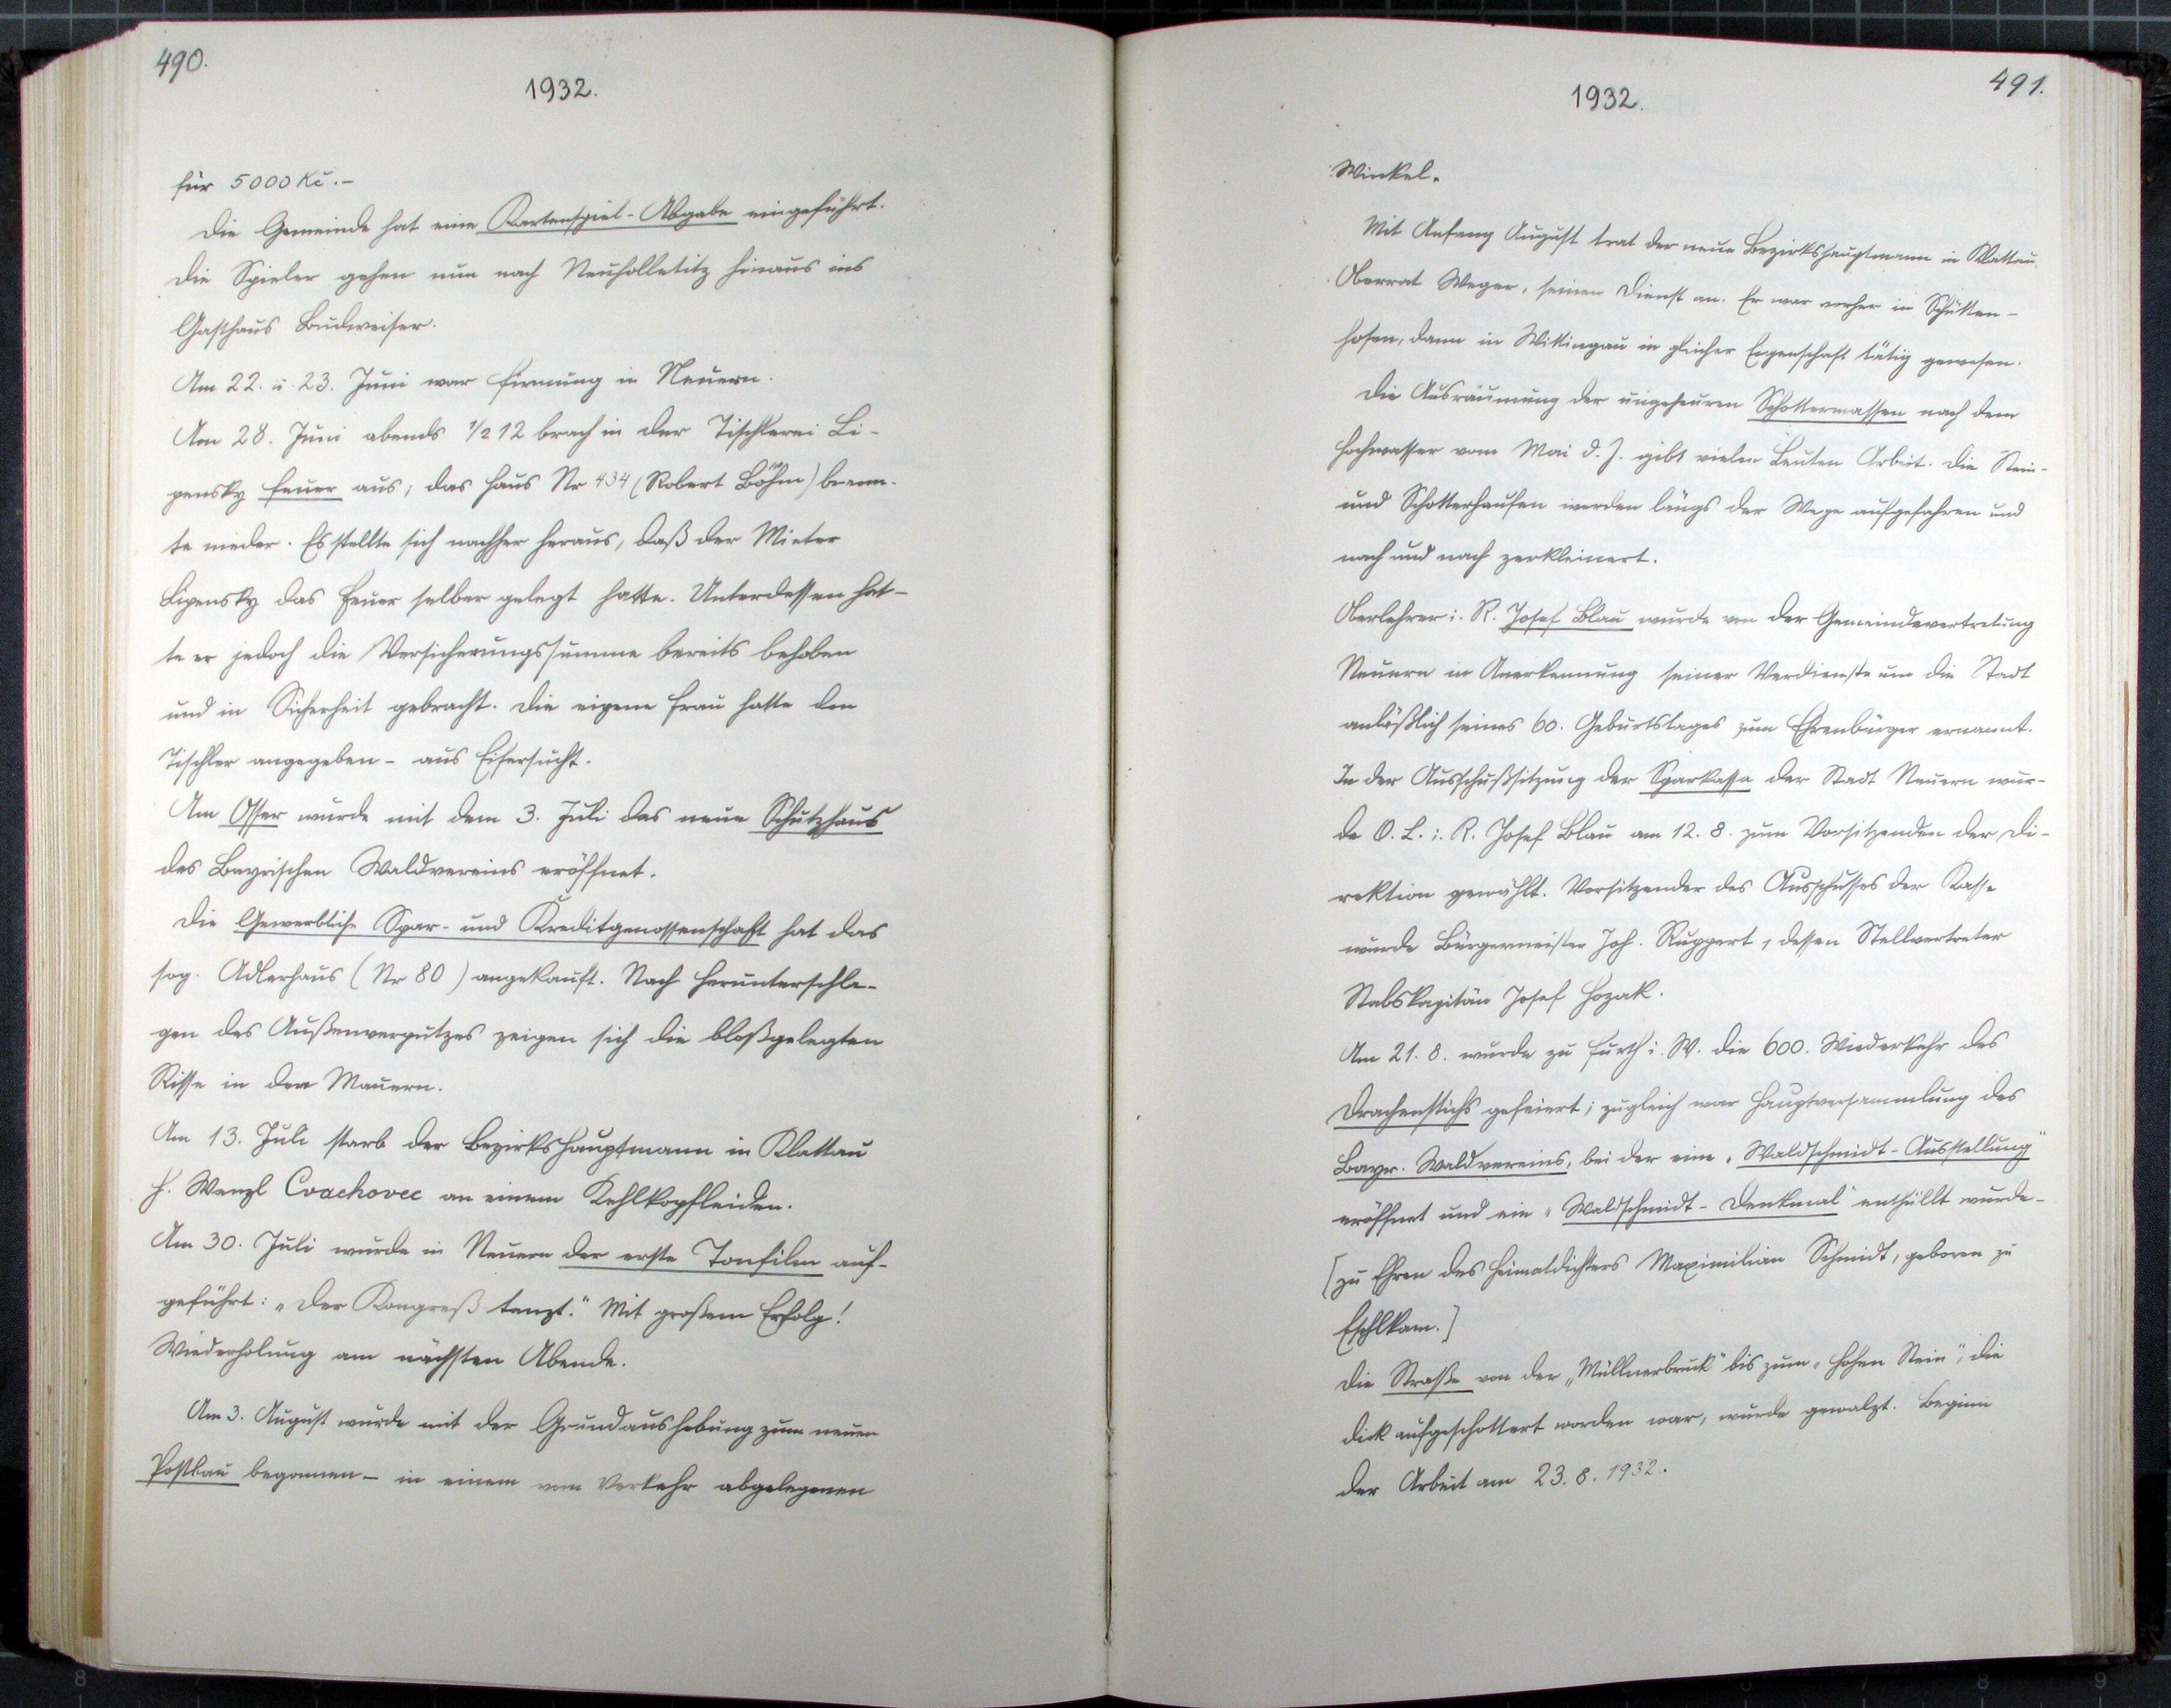 490.
1932.
für 5000 Kč.-
Die Gemeinde hat eine Kartenspiel-Abgabe eingeführt.
Die Spieler gehen nun nach Neuholletitz hinaus ins
Gasthaus Budweiser.
Am 22. u. 23. Juni war Firmung in Neuern.
Am 28. Juni abends 1/2 12 brach in der Tischlerei Li-
pensky Feuer aus; das Haus Nr 434 (Robert Böhm) brann-
te nieder. Es stellte sich nachher heraus, daß der Mieter
Lipensky das Feuer selber gelegt hatte. Unterdessen hat-
te er jedoch die Versicherungssumme bereits behoben
und in Sicherheit gebracht. Die eigene Frau hatte den
Tischler angegeben - aus Eifersucht.
Am Osser wurde mit dem 3. Juli das neue Schutzhaus
des Bayrischen Waldvereins eröffnet.
Die Gewerbliche Spar- und Kreditgenossenschaft hat das
sog. Adlerhaus (Nr 80) angekauft. Nach Herunterschla-
gen des Außenverputzes zeigen sich die bloßgelegten
Risse in den Mauern.
Am 13. Juli starb der Bezirkshauptmann in Klattau
H. Wenzl Cvachovec an einem Kehlkopfleiden.
Am 30. Juli wurde in Neuern der erste Tonfilm auf-
geführt: „Der Kongreß tanzt." Mit großem Erfolg!
Wiederholung am nächsten Abende.
Am 3. August wurde mit der Grundaushebung zum neuen
Postbau begonnen - in einem vom Verkehr abgelegenen
491.
1932.
Winkel.
Mit Anfang August trat der neue Bezirkshauptmann in Klattau,
Oberrat Weger, seinen Dienst an. Er war vorher in Schütten-
hofen, dann in Wittingau in gleicher Eigenschaft tätig gewesen.
Die Ausräumung der ungeheuren Schottermassen nach dem
Hochwasser vom Mai d. J. gibt vielen Leuten Arbeit. Die Stein-
und Schotterhaufen werden längs der Wege aufgefahren und
nach und nach zerkleinert.
Oberlehrer i. R. Josef Blau wurde von der Gemeindevertretung
Neuern in Anerkennung seiner Verdienste um die Stadt
anläßlich seines 60. Geburtstages zum Ehrenbürger ernannt.
In der Ausschußsitzung der Sparkassa der Stadt Neuern wur-
de O. L. i. R. Josef Blau am 12. 8. zum Vorsitzenden der Di-
rektion gewählt. Vorsitzender des Ausschusses der Kasse
wurde Bürgermeister Joh. Ruppert, dessen Stellvertreter
Stabskapitän Josef Hozak.
Am 21. 8. wurde zu Furth i. W. die 600. Wiederkehr des
Drachenstichs gefeiert; zugleich war Hauptversammlung des
Bayr. Waldvereins, bei der eine „Waldschmidt-Ausstellung"
eröffnet und ein „Waldschmidt-Denkmal" enthüllt wurde -
[zu Ehren des Heimatdichters Maximilian Schmidt, geboren zu
Eschlkam.]
Die Straße von der „Müllnerbruck" bis zum „Hohen Stein", die
dick aufgeschottert worden war, wurde gewalzt. Beginn
der Arbeit am 23. 8. 1932.